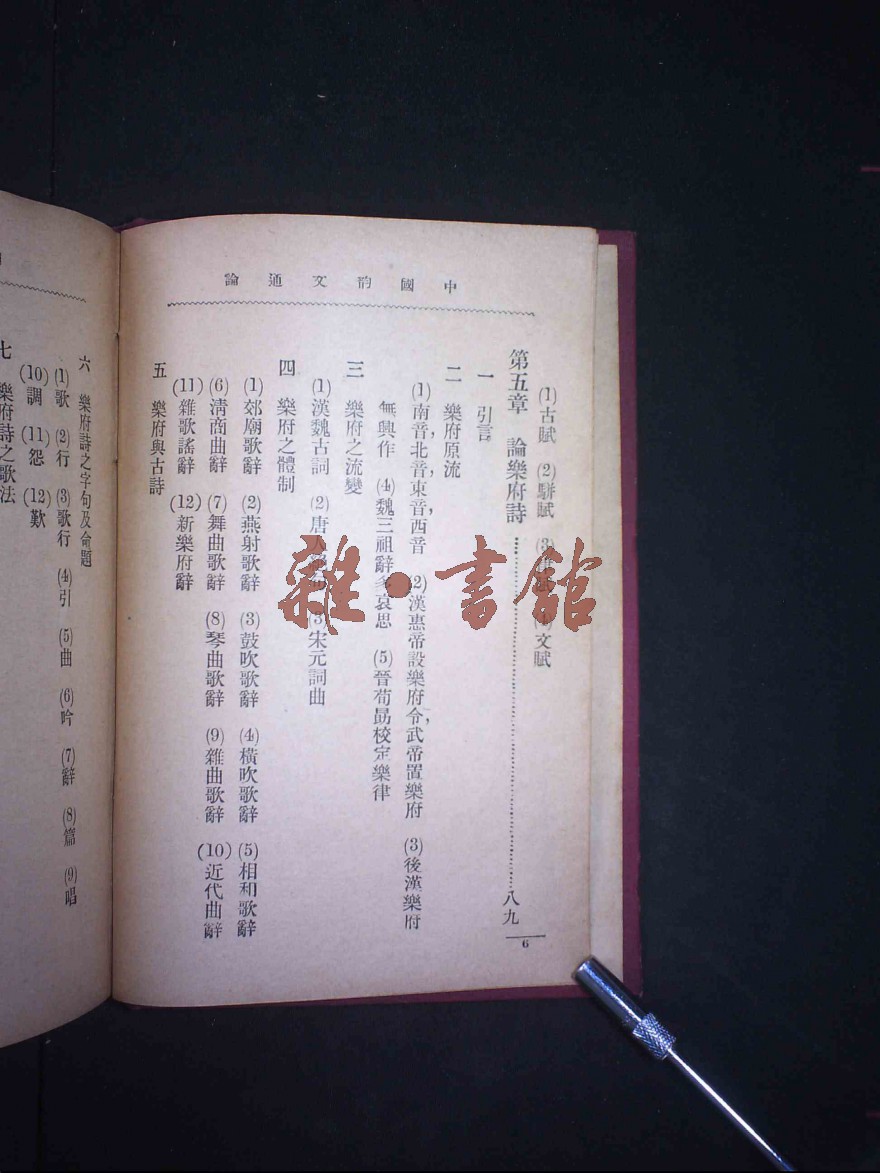 中國韵文通論
(1)古賦 (2)駢賦 (3) (4)文賦
第五章 論樂府詩…………八九
一 引言
二 樂府原流
(1)南音,北音,東音,西音 (2)漢惠帝設樂府令,武帝置樂府 (3)後漢樂府
無興作 (4)魏三祖辭多哀思 (5)晉荀勗校定樂律
三 樂府之流變
(1)漢魏古詞 (2)唐人 (3)宋元詞曲
四 樂府之體制
(1)郊廟歌辭 (2)燕射歌辭 (3)鼓吹歌辭 (4)橫吹歌辭 (5)相和歌辭
(6)淸商曲辭 (7)舞曲歌辭 (8)琴曲歌辭 (9)雜曲歌辭 (10)近代曲辭
(11)雜歌謠辭 (12)新樂府辭
五 樂府與古詩
6
六 樂府詩之字句及命題
(1)歌 (2)行 (3)歌行 (4)引 (5)曲 (6)吟 (7)辭 (8)篇 (9)唱
(10)調 (11)怨 (12)歎
七 樂府詩之歌法
雜·書館